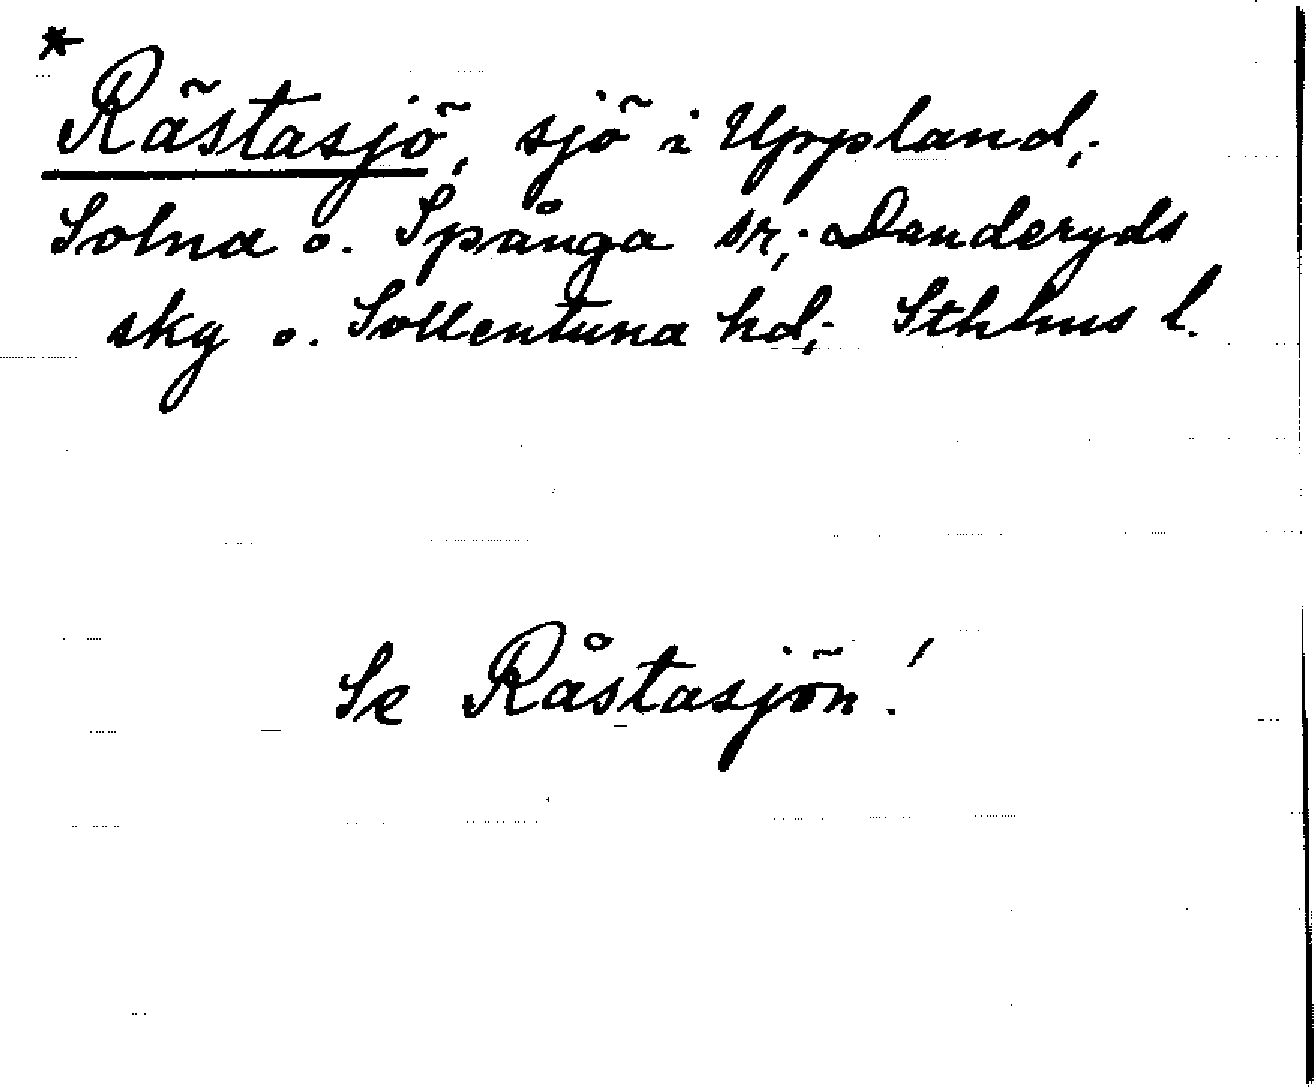 * Rästasjö, sjö i Uppland;
Solna o. Spånga sr; Danderyds
skg o. Sollentuna hd; Sthlms l.
Se Råstasjön!